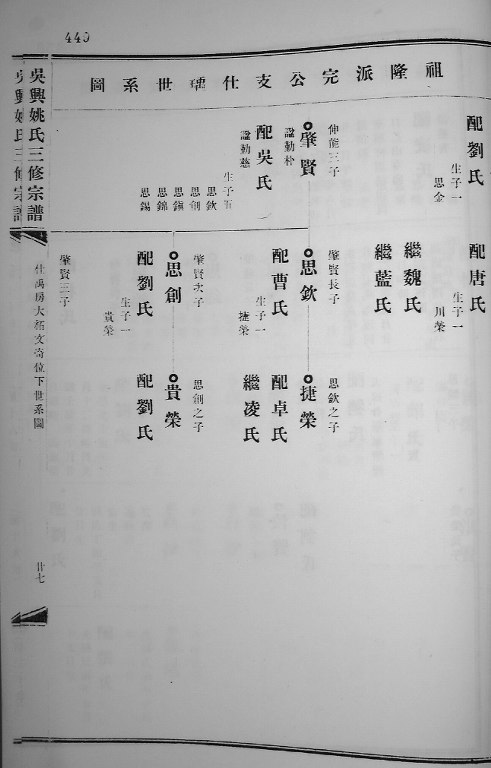 440
祖隆派完公支仕瑀世系圖
配劉氏
生子一
思金
配唐氏
生子一
川榮
繼魏氏
繼藍氏
伸龍三子
肇賢
諡勤朴
配吳氏
諡勤慈
生子五
思欽
思創
思鎮
思錦
思錫
肇賢長子
思欽
配曹氏
生子一
捷榮
思欽之子
捷榮
配卓氏
繼凌氏
肇賢次子
思創
配劉氏
生子一
貴榮
思創之子
貴榮
配劉氏
肇賢三子
吳興姚氏三修宗譜
仕禹房大栢文奇位下世系圖
廿七
吳興姚氏三修宗譜